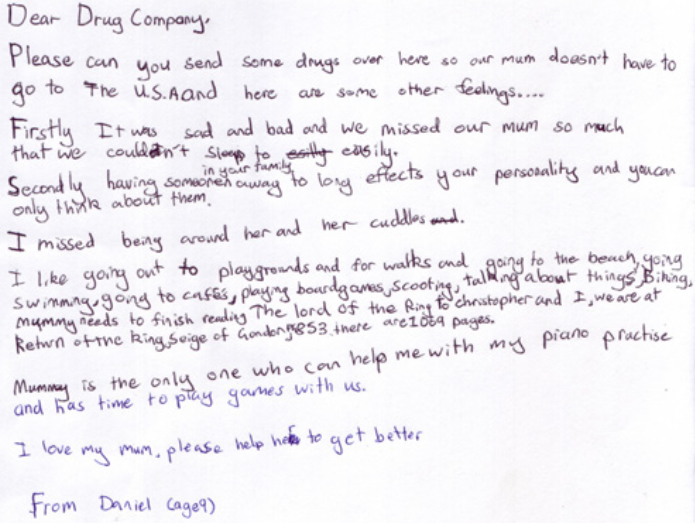 Dear Drug Company.
Please can you send some drugs over here so our mum doesn't have to
go to The U.S.A and here are some other feelings....
Firstly It was sad and bad and we missed our mum so much
that we couldn't sleep to easilly easily.
Secondly having someone in your family away to long effects your personality and you can
only think about them.
I missed being around her and her cuddles and.
I like going out to playgrounds and for walks and going to the beach, going
swimming, going to cafés, playing boardgames, scooting, talking about things, Biking,
mummy needs to finish reading The lord of the Ring to christopher and I, we are at
Return of the king, Seige of Gondor, p853. there are 1069 pages.
Mummy is the only one who can help me with my piano practise
and has time to play games with us.
I love my mum, please help her to get better
From Daniel (age9)